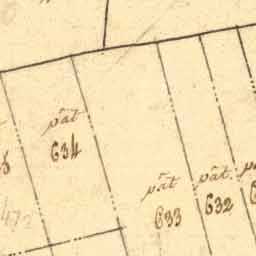 pât
634
pât
633
pât.
632
472